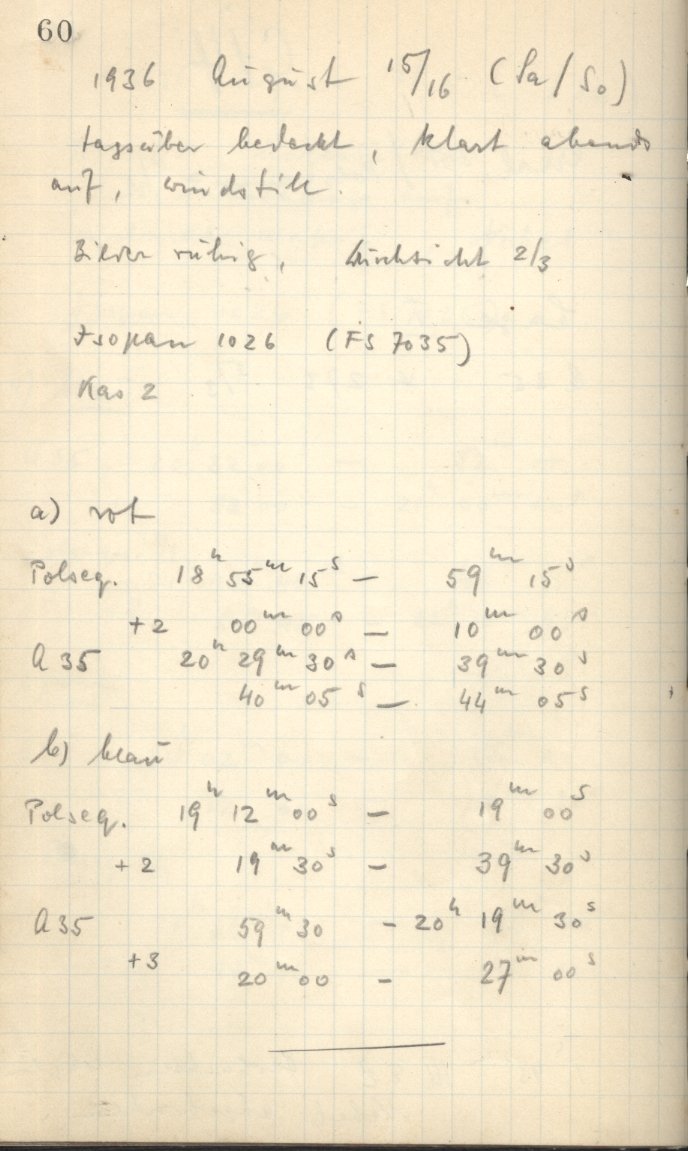 60
1936 August 15/16 (Sa/So)
tagsüber bedeckt, klart abends
auf, windstill.
Bilder ruhig, Durchsicht 2/3
Isopan 1026 (FS 7035)
Kas 2
a) rot
Polseq. 18ʰ 55ᵐ 15ˢ — 59ᵐ 15ˢ
+2 00ᵐ 00ˢ — 10ᵐ 00ˢ
A 35 20ʰ 29ᵐ 30ˢ — 39ᵐ 30ˢ
40ᵐ 05ˢ — 44ᵐ 05ˢ
b) blau
Polseq. 19ʰ 12ᵐ 00ˢ — 19ᵐ 00ˢ
+2 19ᵐ 30ˢ — 39ᵐ 30ˢ
A 35 59ᵐ 30 – 20ʰ 19ᵐ 30ˢ
+3 20ᵐ 00 – 27ᵐ 00ˢ